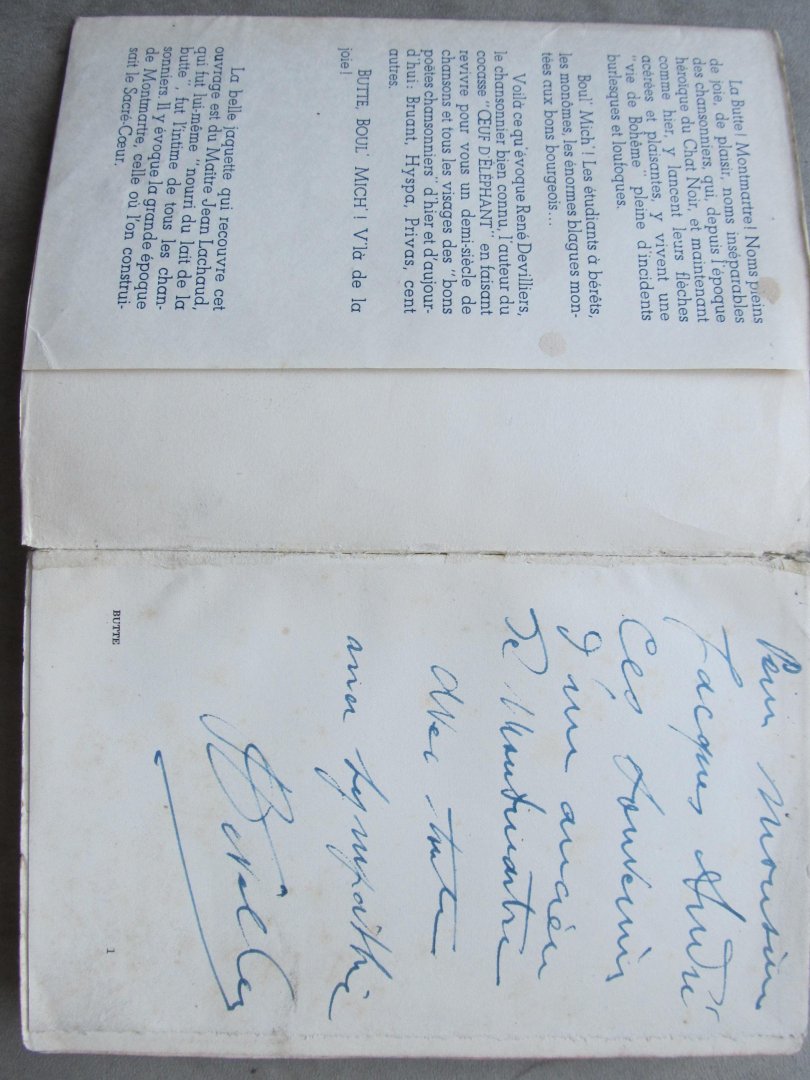 La Butte! Montmartre! Noms pleins
de joie, de plaisir, noms inséparables
des chansonniers, qui, depuis l'époque
héroïque du Chat Noir, et maintenant
comme hier, y lancent leurs flèches
acérées et plaisantes, y vivent une
"vie de Bohême" pleine d'incidents
burlesques et loufoques.
Boul' Mich'! Les étudiants à bérêts,
les monômes, les énormes blagues mon-
tées aux bons bourgeois...
Voilà ce qu'évoque René Devilliers,
le chansonnier bien connu, l'auteur du
cocasse "ŒUF D'ÉLÉPHANT" en faisant
revivre pour vous un demi-siècle de
chansons et tous les visages des "bons
poètes chansonniers" d'hier et d'aujour-
d'hui: Bruant, Hyspa, Privas, cent
autres.
BUTTE, BOUL' MICH'! V'là de la
joie!
La belle jaquette qui recouvre cet
ouvrage est du Maître Jean Lachaud,
qui fut lui-même "nourri du lait de la
butte", fut l'intime de tous les chan-
sonniers. Il y évoque la grande époque
de Montmartre, celle où l'on construi-
sait le Sacré-Cœur.
Pour Monsieur
Jacques André
Ces souvenirs
d'un ancien
de Montmartre
avec toute
ma sympathie
BUTTE
1